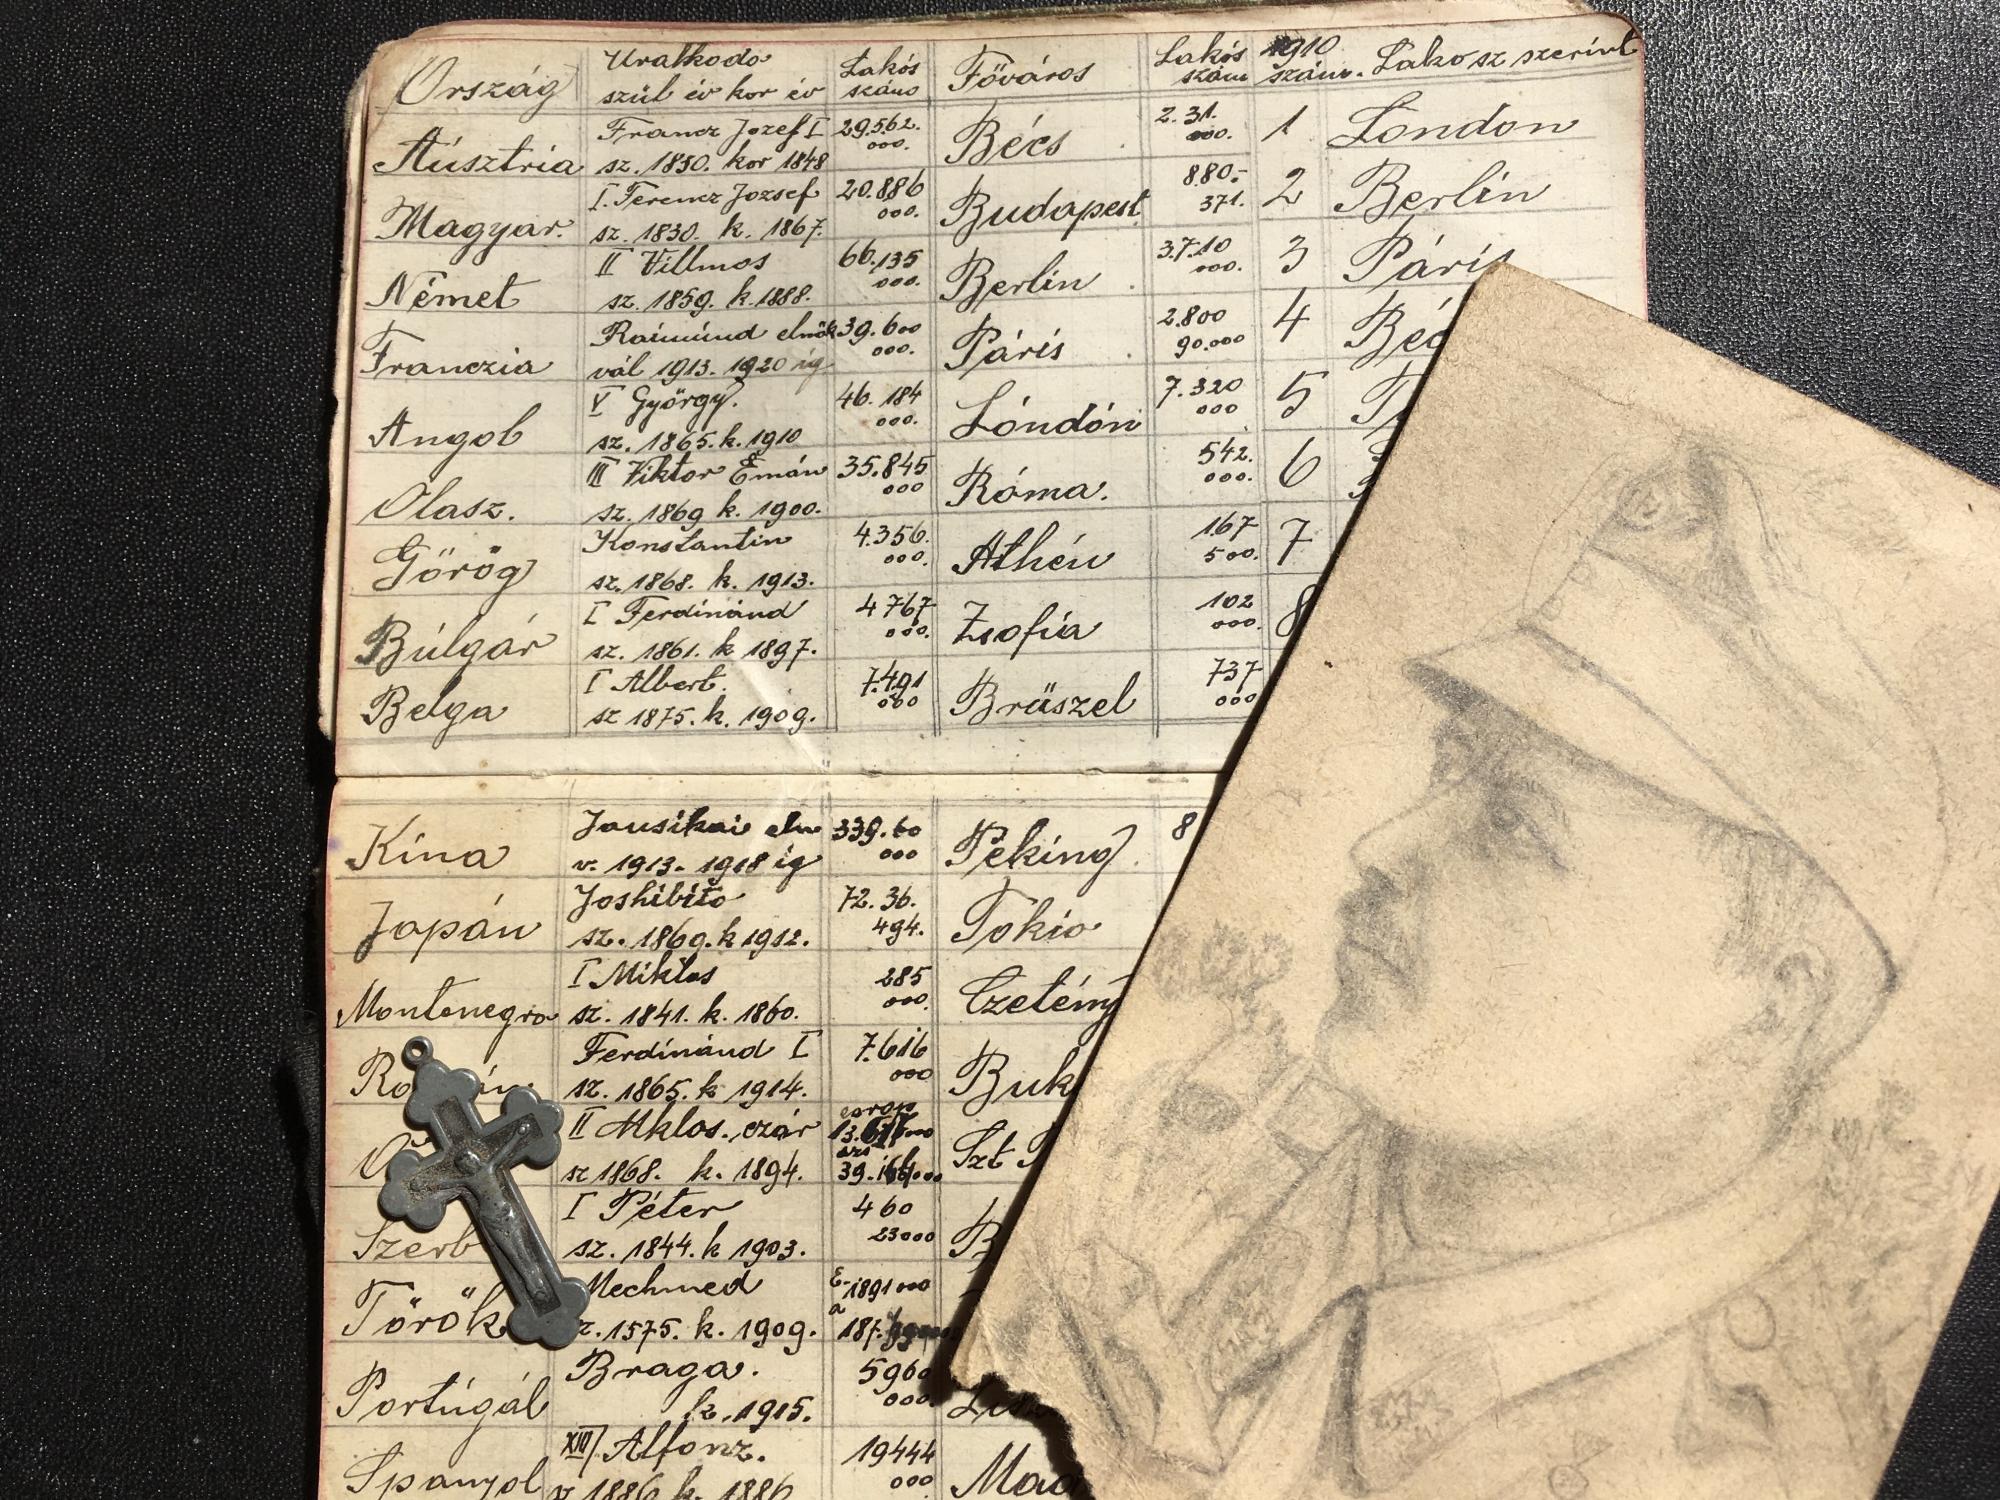 Ország Uralkodo Lakós Főváros Lakós 1910 Lakosz szerint
szül év kor év szám szám szám.
Francz Jozef I 29.562. 2.31.
Aúsztria sz. 1830. kor 1848 000. Bécs 000. 1 London
I. Ferencz Jozsef 20.886 880.-
Magyar. sz. 1830. k. 1867. 000. Budapest 371. 2 Berlin
II Villmos 66.135 3.710
Német sz. 1859. k. 1888. 000. Berlin 000. 3 Páris
Raimúnd elnök 39.600 2.800
Franczia vál 1913. 1920 ig 000. Páris 90.000 4 Béc
V György. 46.184 7.320
Angol sz. 1865. k. 1910 000. Lóndón 000 5
III Viktor Emán 35.845 542.
Olasz. sz. 1869 k. 1900. 000 Róma. 000. 6
Konstantin 4.356. 167
Görög sz. 1868. k. 1913. 000. Athén 500. 7
I Ferdinánd 4767 102
Búlgár sz. 1861. k 1897. 000. Zsofia 000. 8
I Albert. 7.491 737
Belga sz 1875. k. 1909. 000 Brüszel 000
eln 339.60 8
Kína v. 1913. 1918 ig 000 Peking
Joshihito 72.36.
Japán sz. 1869. k 1912. 494. Tokio
I Miklos 285
Montenegro sz. 1841. k. 1860. 000. Czetény
Ferdínánd I 7.616
sz. 1865. k 1914. 000 Buk
II Miklos. czár europ
sz 1868. k. 1894. Szt
I Péter 460
Szerb sz. 1844. k 1903. 23000
Mechmed E- 1891000
Török z. 1575. k. 1909. a 187.
Braga. 5960
Portúgál k. 1915. 000.
XIII Alfonz. 19444
Spanyol sz 1886 k. 1886 000 Mad